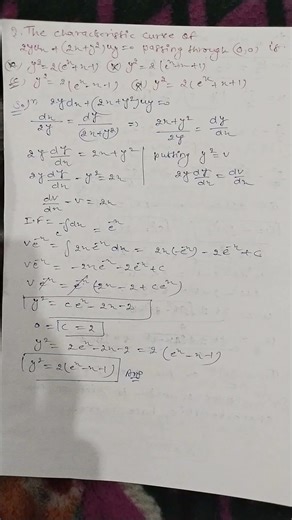 9. The characteristic curve of
2yux + (2x+y²)uy=0 passing through (0,0) is
(a) y²=2(eˣ+x-1) (b) y²= 2(eˣ-x+1)
(c) y²=2(eˣ-x-1) (d) y²= 2(eˣ+x+1)
Soln 2yux+(2x+y²)uy=0
dx/2y = dy/(2x+y²) => 2x+y²/2y = dy/dx
2y dy/dx = 2x+y² | putting y²=v
2y dy/dx - y² = 2x | 2y dy/dx = dv/dx
dv/dx - v = 2x
I.F = e^-∫dx = e⁻ˣ
ve⁻ˣ = ∫2xe⁻ˣdx = 2x(-e⁻ˣ) - 2e⁻ˣ + C
ve⁻ˣ = -2xe⁻ˣ-2e⁻ˣ+C
y² = ceˣ-2x-2
C = 2
y² = 2eˣ-2x-2 = 2(eˣ-x-1)
y²=2(eˣ-x-1) Ans